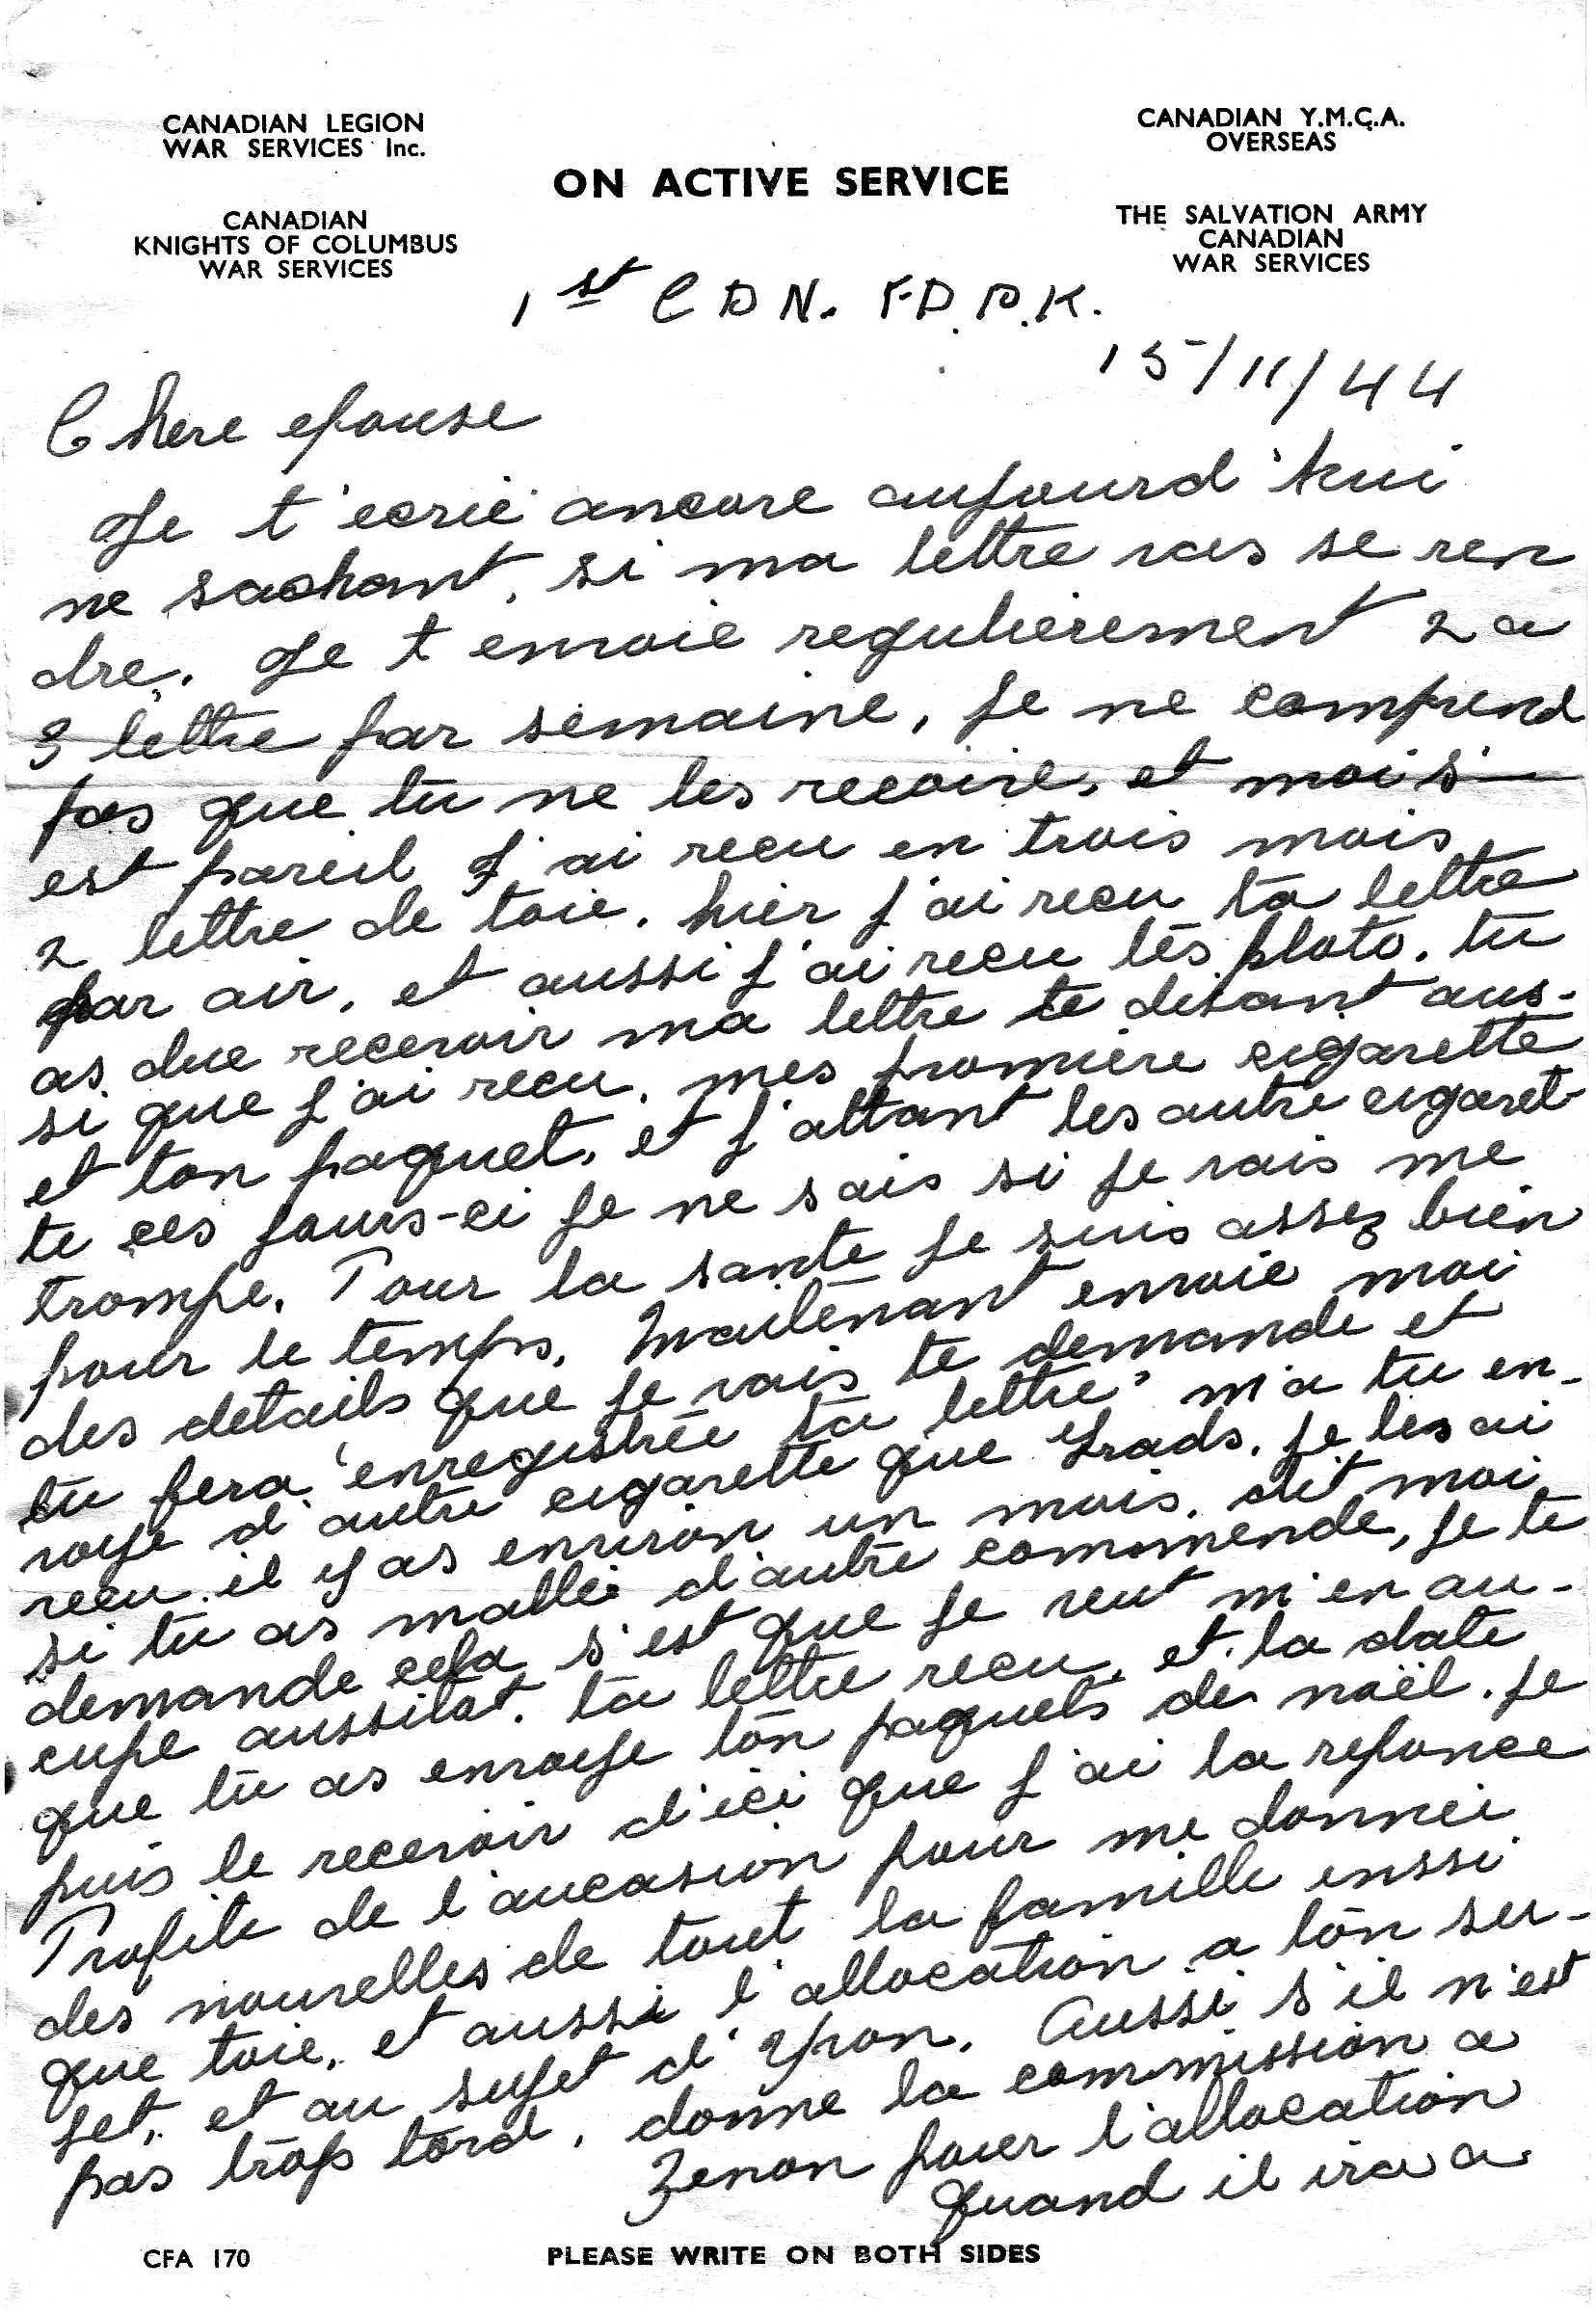 CANADIAN LEGION
WAR SERVICES Inc.
CANADIAN
KNIGHTS OF COLUMBUS
WAR SERVICES
ON ACTIVE SERVICE
CANADIAN Y.M.C.A.
OVERSEAS
THE SALVATION ARMY
CANADIAN
WAR SERVICES
1st CDN. F.D. P.K.
15/11/44
Chere epouse
Je t'ecrie ancore aujourd'hui
ne sachant, si ma lettre vas se ren
dre. Je t envoie regulierement 2 a
3 lettre par semaine, je ne comprend
pas que tu ne les recoive, et moi s'
est pareil J'ai recu en trois mois
2 lettre de toie. hier j'ai recu ta lettre
par air, et aussi j'ai recu les ploto. tu
as due recevoir ma lettre te disant aus-
si que j'ai recu, mes promiere cigarette
et ton paquet, et j'attant les autre cigaret-
te ces jours-ci je ne sais si je vais me
trompe. Pour la sante je suis assez bien
pour le temps. Maintenant envoie moi
des details que je vais te demande et
tu fera enregistrée ta lettre, m'a tu en-
voye d'autre cigarette que Grads. je les ai
recu il y as environ un mois. dit moi
si tu as mallé d'autre commende, je te
demande cela s'est que je veut m'en au-
cupe aussitot. ta lettre recu, et la date
que tu as envoye ton paquets de noël. je
puis le recevoir d'ici que j'ai la reponce
Profite de l'aucasion pour me donnei
des nouvelles de tout la famille enssi
que toie, et aussi l'allocation a ton su-
jet, et au sujet d'Yvon. Aussi s'il n'est
pas trop tord, donne la commission a
Zenon pour l'allocation
quand il ira a
CFA 170
PLEASE WRITE ON BOTH SIDES